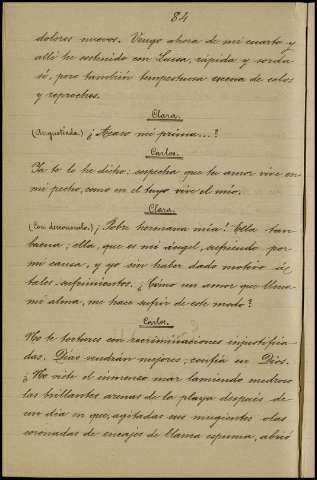 84
dolores nuevos. Vengo ahora de mi cuarto y
allí he sostenido con Luisa, rápida y sorda
sí, pero también tempestuosa escena de celos
y reproches.
Clara.
(Angustiada) ¿Acaso mi prima...?
Carlos.
Ya te lo he dicho: sospecha que tu amor vive en
mi pecho, como en el tuyo vive el mío.
Clara.
(Con desconsuelo.) ¡Pobre hermana mía! Ella tan
buena; ella, que es mi ángel, sufriendo por
mi causa, y yo sin haber dado motivo de
tales sufrimientos. ¿Cómo un amor que llena
mi alma, me hace sufrir de este modo?
Carlos.
No te tortures con recriminaciones injustifica-
das. Días vendrán mejores; confía en Dios.
¿No viste el inmenso mar lamiendo medroso
las brillantes arenas de la playa después de
un día en que, agitadas sus mugientes olas
coronadas de encajes de blanca espuma, abrió